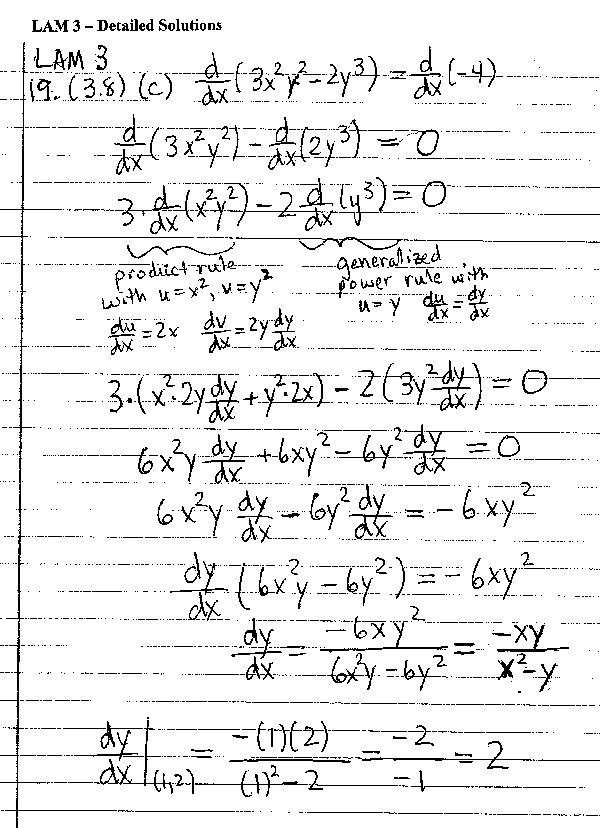 LAM 3 – Detailed Solutions
LAM 3
19. (3.8) (c) d/dx (3x²y² - 2y³) = d/dx (-4)
d/dx (3x²y²) - d/dx (2y³) = 0
3 · d/dx (x²y²) - 2 d/dx (y³) = 0
product rule
with u = x², v = y²
du/dx = 2x dv/dx = 2y dy/dx
generalized
power rule with
u = y du/dx = dy/dx
3 · (x² · 2y dy/dx + y² · 2x) - 2 (3y² dy/dx) = 0
6x²y dy/dx + 6xy² - 6y² dy/dx = 0
6x²y dy/dx - 6y² dy/dx = -6xy²
dy/dx (6x²y - 6y²) = -6xy²
dy/dx = -6xy² / 6x²y - 6y² = -xy / x² - y
dy/dx |(1,2) = -(1)(2) / (1)² - 2 = -2 / -1 = 2